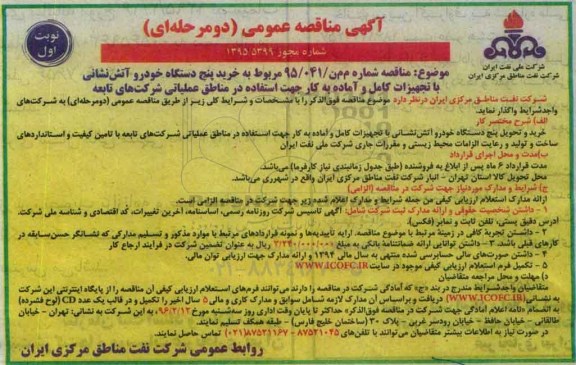 آگهی مناقصه عمومی (دومرحله‌ای)
نوبت اول
شماره مجوز ۱۳۹۵.۵۳۹۹
شرکت ملی نفت ایران
شرکت نفت مناطق مرکزی ایران
موضوع: مناقصه شماره م‌م‌ن/۹۵/۰۴۱ مربوط به خرید پنج دستگاه خودرو آتش‌نشانی
با تجهیزات کامل و آماده به کار جهت استفاده در مناطق عملیاتی شرکت‌های تابعه
شرکت نفت مناطق مرکزی ایران درنظر دارد موضوع مناقصه فوق‌الذکر را با مشخصات و شرایط کلی زیر از طریق مناقصه عمومی (دومرحله‌ای) به شرکت‌های
واجدشرایط واگذار نماید.
الف) شرح مختصر کار
خرید و تحویل پنج دستگاه خودرو آتش‌نشانی با تجهیزات کامل و آماده به کار جهت استفاده در مناطق عملیاتی شرکت‌های تابعه با تامین کیفیت و استانداردهای
ساخت و تولید و رعایت الزامات محیط زیستی و مقررات جاری شرکت ملی نفت ایران
ب)مدت و محل اجرای قرارداد
مدت قرارداد ۶ ماه پس از ابلاغ به فروشنده (طبق جدول زمانبندی نیاز کارفرما) می‌باشد.
محل تحویل کالا استان تهران - انبار شرکت نفت مناطق مرکزی ایران واقع در شهرری می‌باشد.
ج) شرایط و مدارک موردنیاز جهت شرکت در مناقصه (الزامی)
ارائه مدارک استعلام ارزیابی کیفی من جمله شرایط و مدارک اعلام شده زیر جهت شرکت در مناقصه الزامی است.
۱ - داشتن شخصیت حقوقی و ارائه مدارک ثبت شرکت شامل: آگهی تاسیس شرکت روزنامه رسمی، اساسنامه، آخرین تغییرات، کد اقتصادی و شناسه ملی شرکت.
آدرس دقیق پستی، تلفن ثابت و نمابر (فکس).
۲ - داشتن تجربه کافی در زمینه مرتبط با موضوع مناقصه. ارایه تاییدیه‌ها و نمونه قراردادهای مرتبط با موارد مذکور و تسلیم مدارکی که نشانگر حسن‌سابقه در
کارهای قبلی باشد. ۳ - داشتن توانایی ارائه ضمانتنامه بانکی به مبلغ ۲/۲۴۰/۰۰۰/۰۰۰ ریال به عنوان تضمین شرکت در فرآیند ارجاع کار
۴ - داشتن صورت‌های مالی حسابرسی شده منتهی به سال مالی ۱۳۹۴ و ارائه مدارک جهت ارزیابی توان مالی.
۵ - تکمیل فرم استعلام ارزیابی کیفی موجود در سایت WWW.ICOFC.IR
د) مهلت و محل مراجعه متقاضیان
متقاضیان واجدشرایط مندرج در بند «ج» که آمادگی شرکت در مناقصه را دارند می‌توانند فرم‌های استعلام ارزیابی کیفی آن مناقصه را از پایگاه اینترنتی این شرکت
به نشانی (WWW.ICOFC.IR) دریافت و براساس آن مدارک لازمه شامل سوابق و مدارک کاری و مالی ۵ سال اخیر را تکمیل و در قالب یک عدد CD (لوح فشرده)
به انضمام «نامه اعلام آمادگی جهت شرکت در مناقصه فوق‌الذکر» حداکثر تا پایان وقت اداری روز سه‌شنبه مورخ ۹۶/۲/۱۲ به این شرکت به نشانی: تهران - خیابان
طالقانی - خیابان حافظ - خیابان رودسر غربی - پلاک ۳۰ (ساختمان خلیج فارس) - طبقه همکف تسلیم نمایند.
در صورت نیاز به اطلاعات بیشتر متقاضیان می‌توانند با تلفن‌های ۸۷۵۲۱۰۴۵ - ۸۷۵۲۱۱۶۷(۰۲۱) تماس حاصل نمایند.
روابط عمومی شرکت نفت مناطق مرکزی ایران